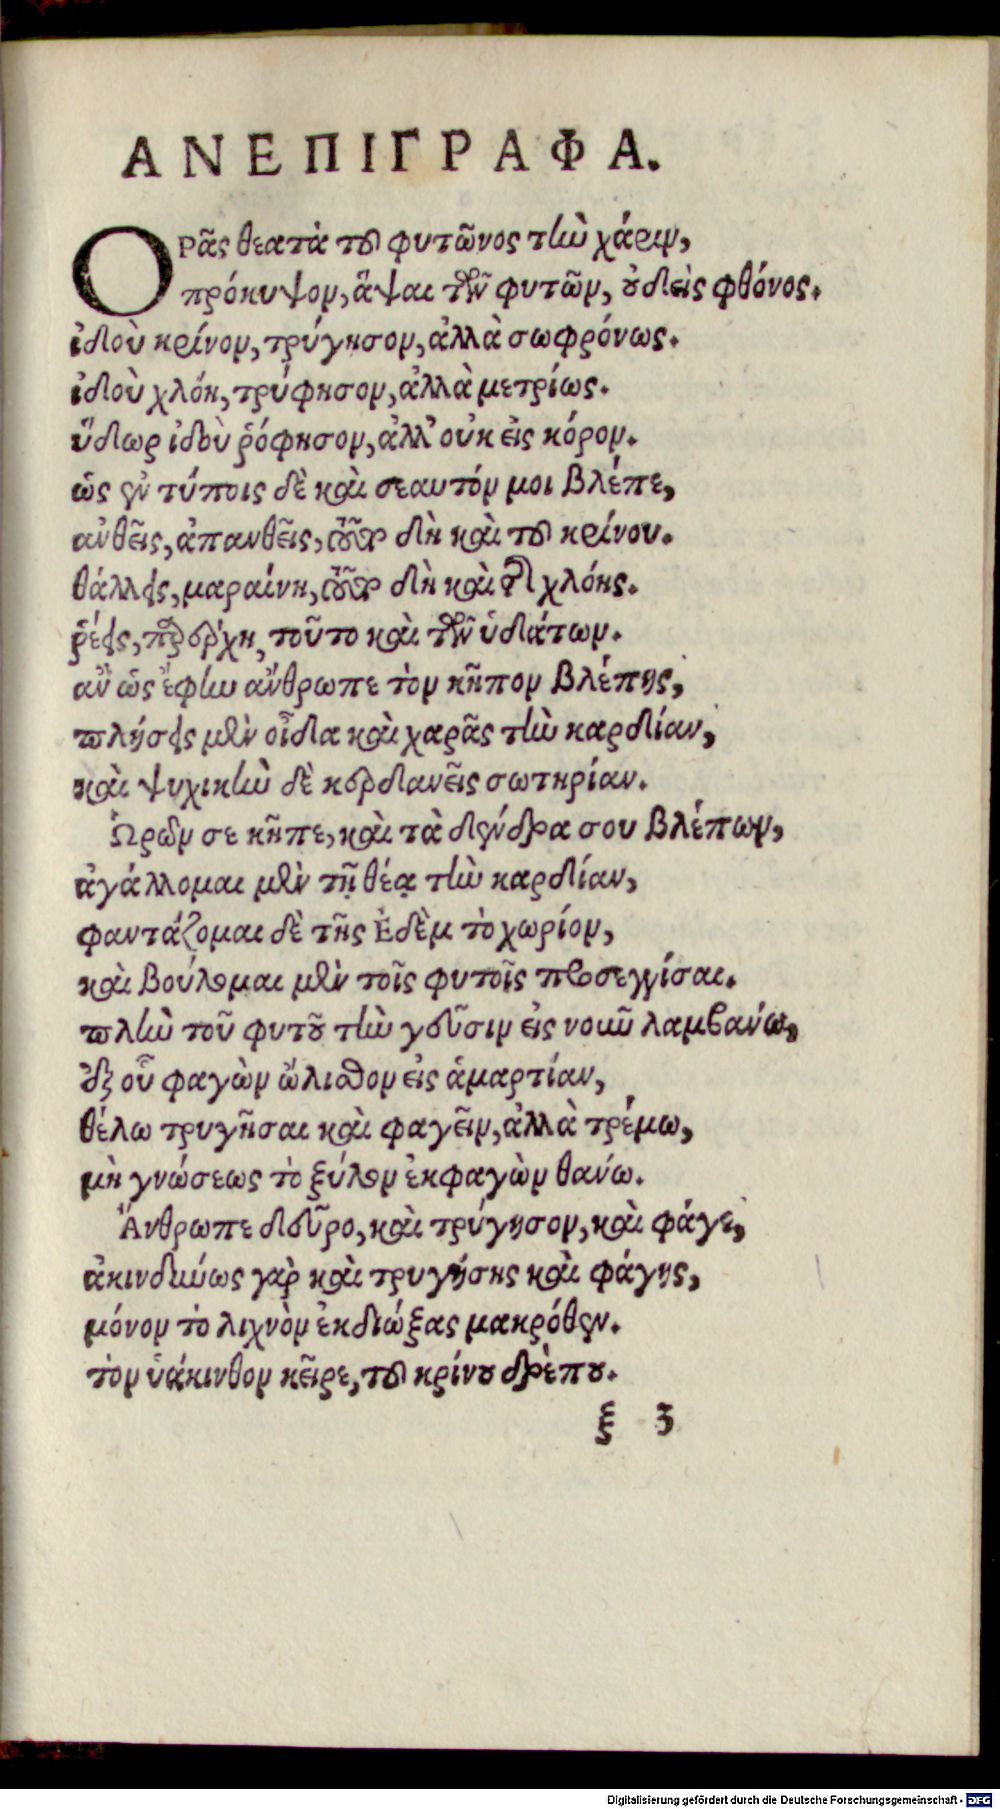 ΑΝΕΠΙΓΡΑΦΑ.
ΟΡᾶς θεατὰ τοῦ φυτῶνος τὴν χάριν,
πρόκυψον, ἅψαι τῶν φυτῶν, οὐδεὶς φθόνος.
ἰδοὺ κρίνον, τρύγησον, ἀλλὰ σωφρόνως.
ἰδοὺ χλόη, τρύφησον, ἀλλὰ μετρίως.
ὕδωρ ἰδοὺ ῥόφησον, ἀλλ' οὐκ εἰς κόρον.
ὡς ἐν τύποις δὲ καὶ σεαυτόν μοι βλέπε,
ἀνθεῖς, ἀπανθεῖς, τοῦτο δὴ καὶ τοῦ κρίνου.
θάλλεις, μαραίνη, τοῦτο δὴ καὶ τῆς χλόης.
ῥέεις, παρέρχη, τοῦτο καὶ τῶν ὑδάτων.
ἂν ὡς ἔφην ἄνθρωπε τὸν κῆπον βλέπης,
πλήσεις μὲν οἶδα καὶ χαρᾶς τὴν καρδίαν,
καὶ ψυχικὴν δὲ κερδανεῖς σωτηρίαν.
Ὁρῶν σε κῆπε, καὶ τὰ δένδρα σου βλέπων,
ἀγάλλομαι μὲν τῇ θέᾳ τὴν καρδίαν,
φαντάζομαι δὲ τῆς Ἐδὲμ τὸ χωρίον,
καὶ βούλομαι μὲν τοῖς φυτοῖς προσεγγίσαι.
πλὴν τοῦ φυτοῦ τὴν γεῦσιν εἰς νοῦν λαμβάνω,
ἐξ οὗ φαγὼν ὤλισθον εἰς ἁμαρτίαν,
θέλω τρυγῆσαι καὶ φαγεῖν, ἀλλὰ τρέμω,
μὴ γνώσεως τὸ ξύλον ἐκφαγὼν θανῶ.
Ἄνθρωπε δεῦρο, καὶ τρύγησον, καὶ φάγε,
ἀκινδύνως γὰρ καὶ τρυγήσης καὶ φάγης,
μόνον τὸ λιχνὸν ἐκδιώξας μακρόθεν.
τὸν ὑάκινθον κεῖρε, τοῦ κρίνου δρέπου.
ξ 3
Digitalisierung gefördert durch die Deutsche Forschungsgemeinschaft - DFG